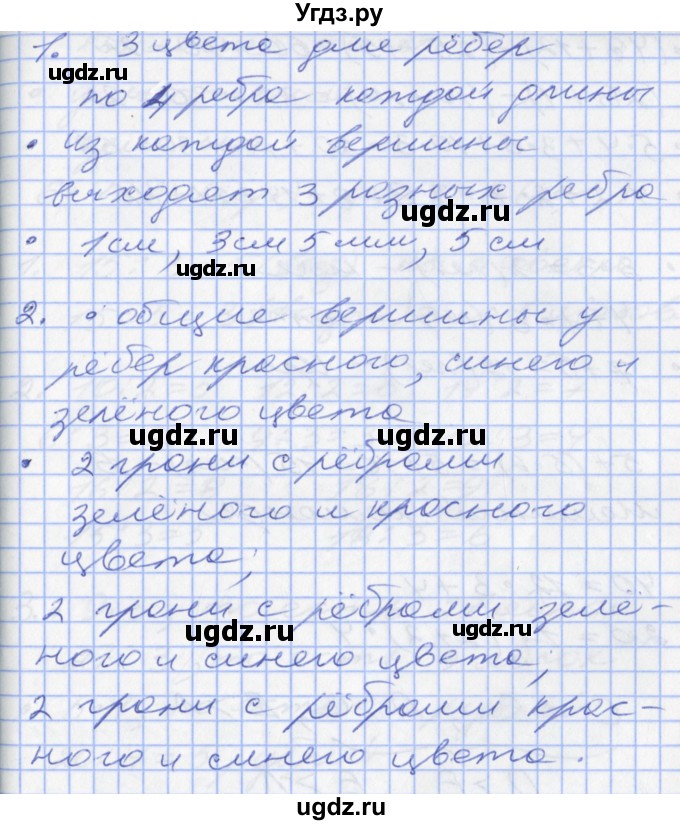 Угдз.ру
1. 3 цвета для рёбер
ugdz.ru
по 4 ребра каждой длины
• из каждой вершины
выходят 3 разных ребра
ugdz.ru
• 1 см, 3 см 5 мм, 5 см
ugdz.ru
2. • общие вершины у
рёбер красного, синего и
зелёного цвета
ugdz.ru ugdz.ru
• 2 грани с рёбрами
зелёного и красного
цвета;
2 грани с рёбрами зелё-
ugdz.ru ugdz.ru
ного и синего цвета;
2 грани с рёбрами крас-
ного и синего цвета.
ugdz.ru